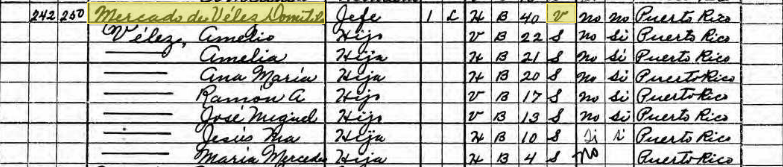 242 250 Mercado de Vélez Domitila Jefe 1 L H B 40 V No No Puerto Rico
Vélez, Amelio Hijo V B 22 S No Si Puerto Rico
—— Amelia Hija H B 21 S No Si Puerto Rico
—— Ana María Hija H B 20 S No Si Puerto Rico
—— Ramón A Hijo V B 17 S No Si Puerto Rico
—— José Miguel Hijo V B 13 S No Si Puerto Rico
—— Jesús Ma Hija H B 10 S Si Puerto Rico
—— María Mercede Hija H B 4 S No Puerto Rico